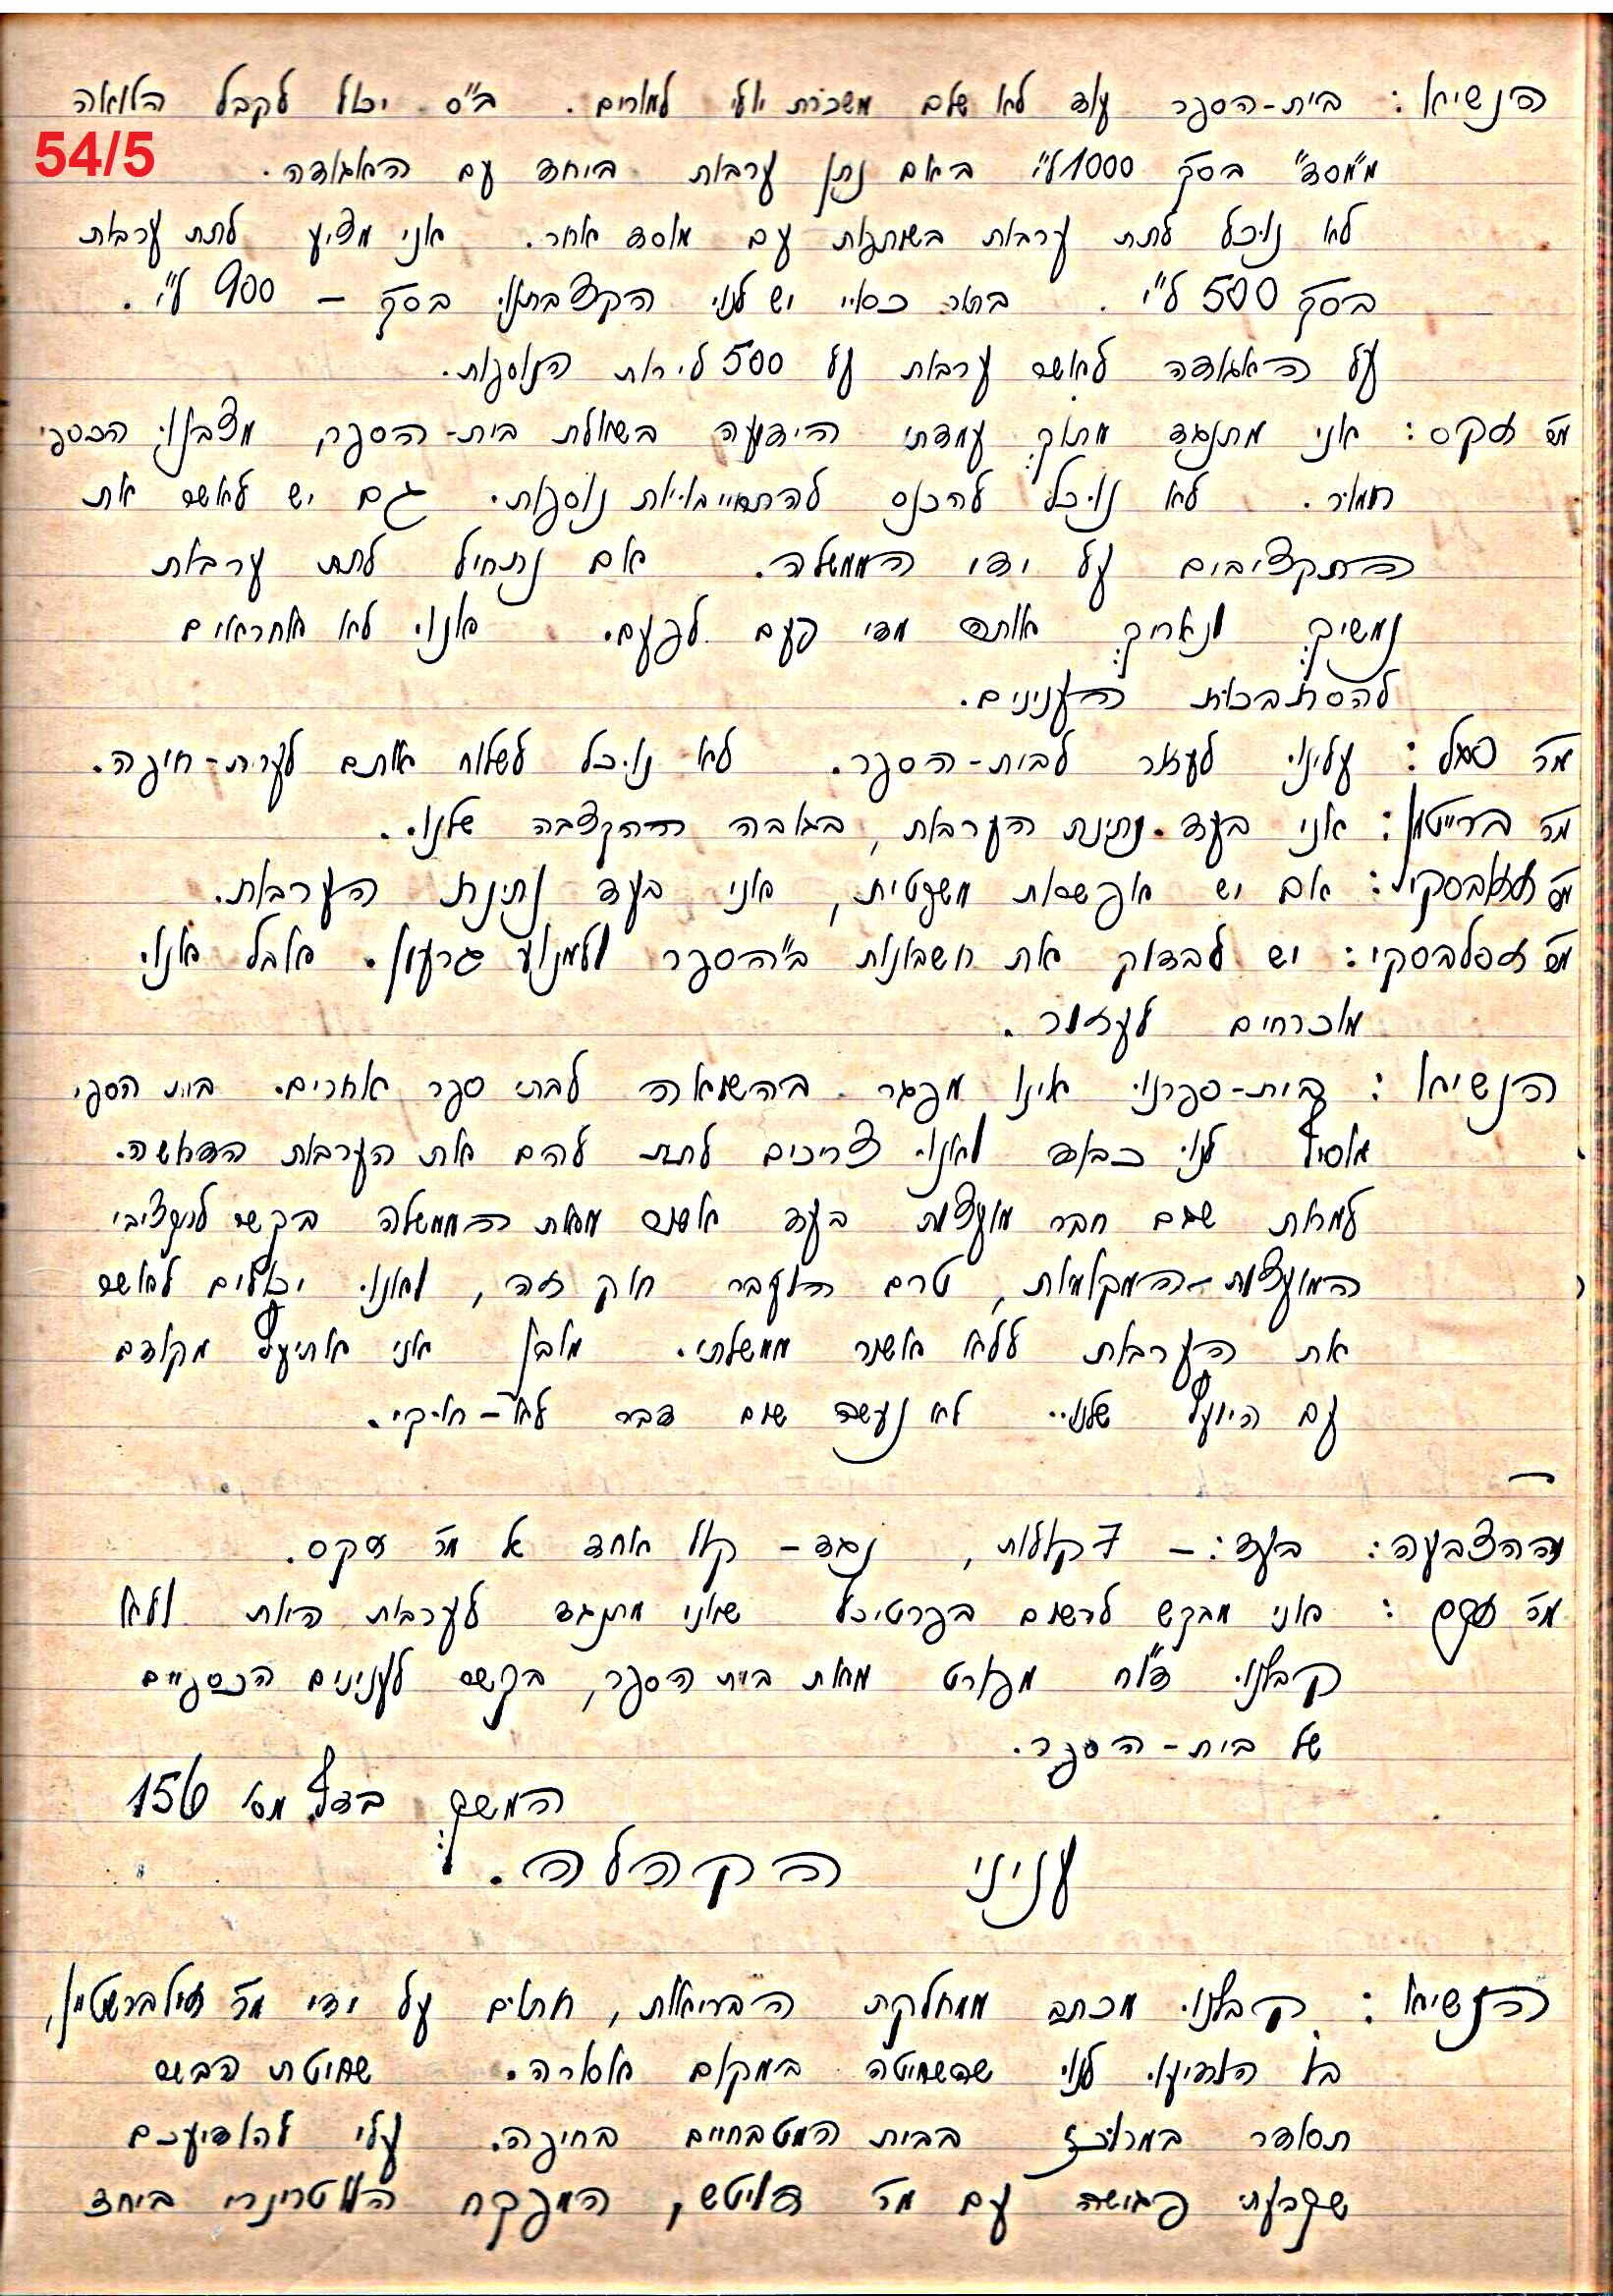 הנשיא: בית-הספר עוד לא שלם משכורת יולי למורים. ב"ס יכול לקבל הלואה
54/5
מ"מסד" בסך 1000 ל"י באם נתן ערבות ביחד עם האגודה.
לא נוכל לתת ערבות בשותפות עם מוסד אחר. אני מציע לתת ערבות
בסך 500 ל"י. בתור כסוי יש לנו הקצבתנו בסך – 900 ל"י.
על האגודה לאשר ערבות על 500 לירות הנוספות.
מר זקס: אני מתנגד מתוך עמדתי הידועה בשאלת בית-הספר, מצבנו הכספי
חמור. לא נוכל להכנס להתחייבויות נוספות. גם יש לאשר את
התקציבים על ידי הממשלה. אם נתחיל לתת ערבות
נמשיך ונאריך אותה מדי פעם לפעם. אנו לא אחראים
להסתבכות הענינים.
מר : עלינו לעזור לבית-הספר. לא נוכל לשלוח אותם לקרית-חיפה.
מר ברייטמן: אני בעד נתינת הערבות, בגובה ההקצבה שלנו.
מר : אם יש אפשרות משפטית, אני בעד נתינת הערבות.
מר : יש לבדוק את חשבונות ביה"הספר ולמנוע גרעון. אבל אנו
מוכרחים לעזור.
הנשיא: בית-ספרנו אינו מפגר בהשואה לבתי ספר אחרים. בית הספר
מוסיף לנו כבוד ואנו צריכים לתת להם את הערבות הדרושה.
למרות שגם חבר מועצות בעד אשור מאת הממשלה בקשר לתקציבי
המועצות-המקומיות, טרם הועבר חוק זה, ואנו יכולים לאשר
את הערבות ללא אשור ממשלתי. מובן אני אתיעץ מקודם
עם היועץ שלנו. לא נעשה שום דבר לא-חוקי.
ההצבעה: בעד: – 7 קולות, נגד – קול אחד של מר זקס.
מר זקס: אני מבקש לרשום בפרטיכל שאני מתנגד לערבות הזאת ולא
קבלנו דו"ח מפורט מאת בית הספר, בקשר לענינים הכספיים
של בית-הספר.
המשך בדף מס' 156
עניני הקהלה.
הנשיא: קבלנו מכתב ממחלקת הבריאות, חתום על ידי מר זילברשטיין,
בו הודיעו לנו שהשחיטה במקום אסורה. שחיטת הבשר
תסודר במרוכז בבית המטבחיים בחיפה. עלי להודיעכם
שקבעתי פגישה עם מר דויטש, המפקח הוטרינרי ביחד